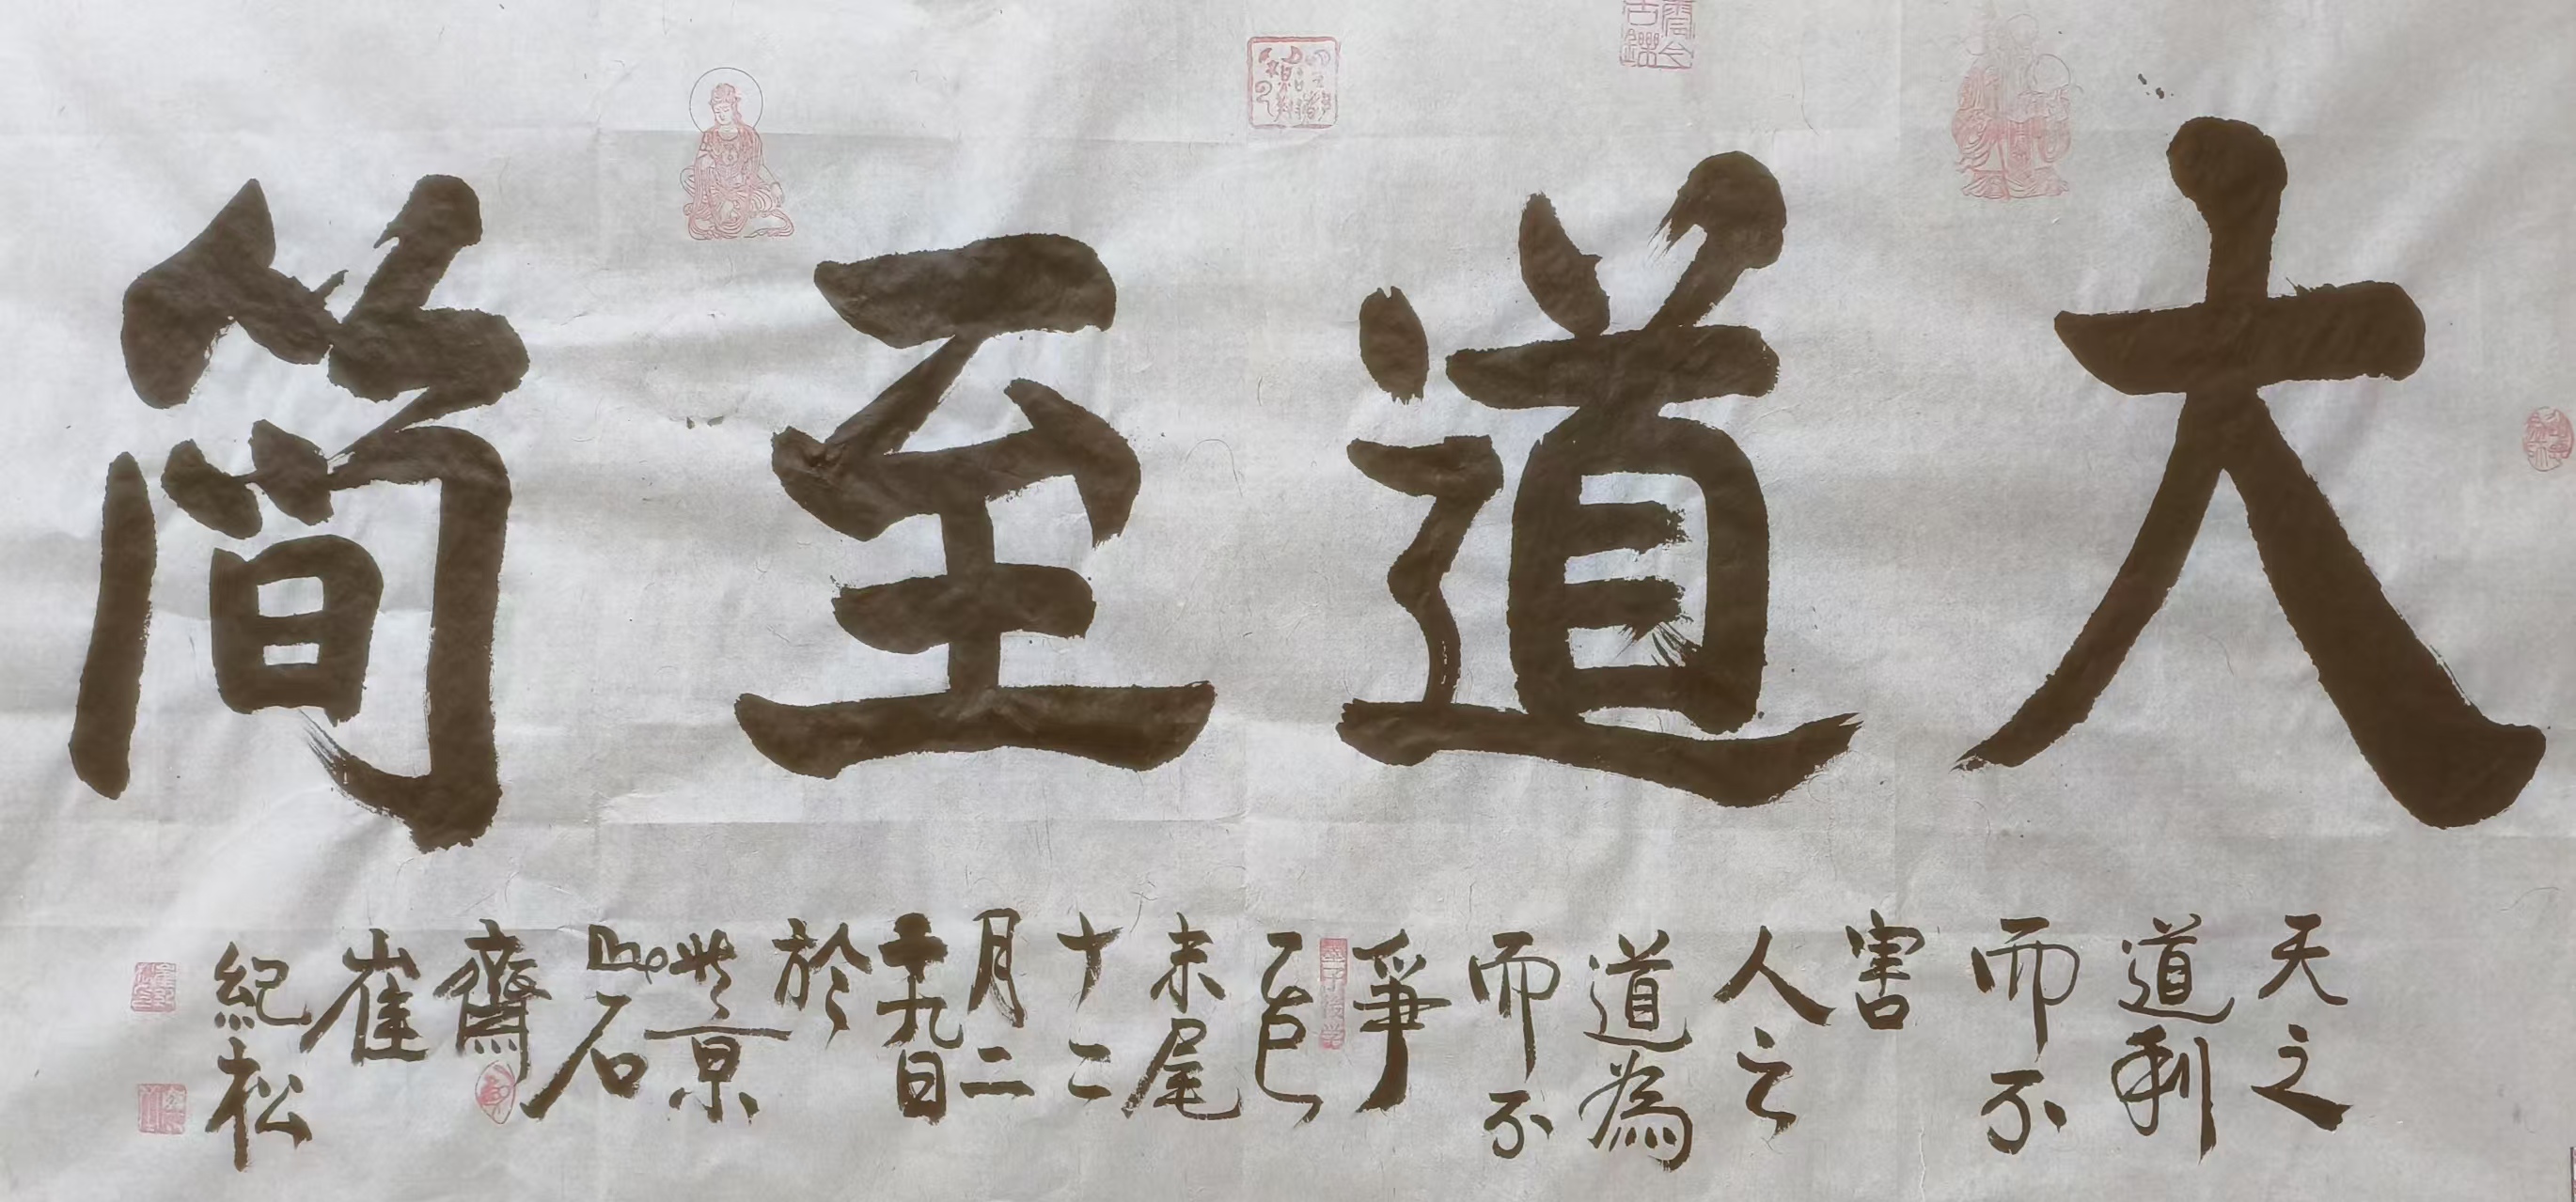 大道至简
天之
道利
而不
害
人之
道為
而不
爭
乙巳
末尾
十二
月二
十九日
於
京
石
齋
崔
紀松